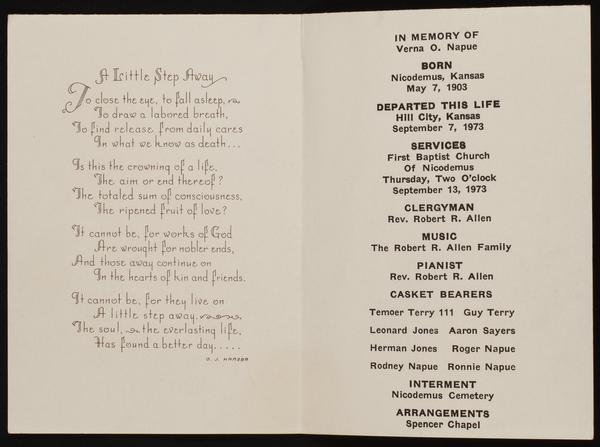 A Little Step Away
To close the eye, to fall asleep,
To draw a labored breath,
To find release from daily cares
In what we know as death...
Is this the crowning of a life,
The aim or end thereof?
The totaled sum of consciousness,
The ripened fruit of love?
It cannot be, for works of God
Are wrought for nobler ends,
And those away continue on
In the hearts of kin and friends.
It cannot be, for they live on
A little step away,
The soul, the everlasting life,
Has found a better day.....
O. J. HANSON
IN MEMORY OF
Verna O. Napue
BORN
Nicodemus, Kansas
May 7, 1903
DEPARTED THIS LIFE
Hill City, Kansas
September 7, 1973
SERVICES
First Baptist Church
Of Nicodemus
Thursday, Two O'clock
September 13, 1973
CLERGYMAN
Rev. Robert R. Allen
MUSIC
The Robert R. Allen Family
PIANIST
Rev. Robert R. Allen
CASKET BEARERS
Temoer Terry 111 Guy Terry
Leonard Jones Aaron Sayers
Herman Jones Roger Napue
Rodney Napue Ronnie Napue
INTERMENT
Nicodemus Cemetery
ARRANGEMENTS
Spencer Chapel